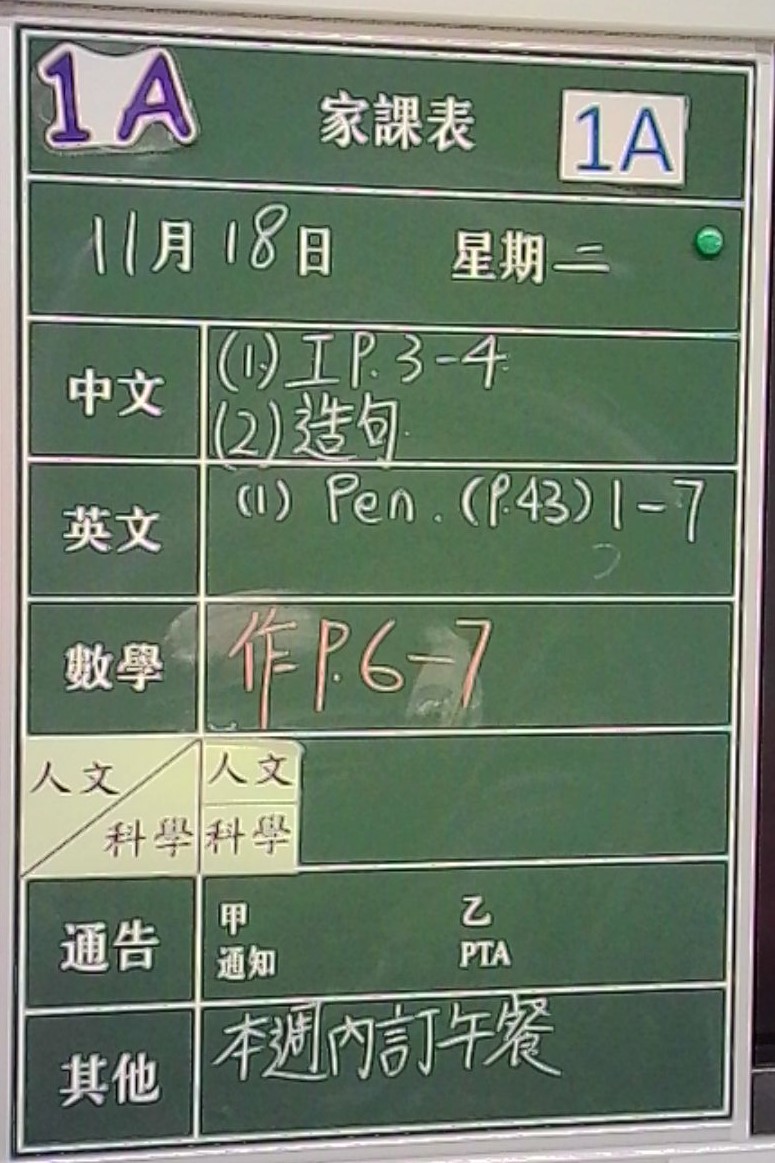 1A 家課表 1A
11月18日 星期二
中文 (1) 工 P.3-4
(2) 造句
英文 (1) Pen. (P.43) 1-7
數學 作 P.6-7
人文 人文
科學 科學
通告 甲 乙
通知 PTA
其他 本週內訂午餐